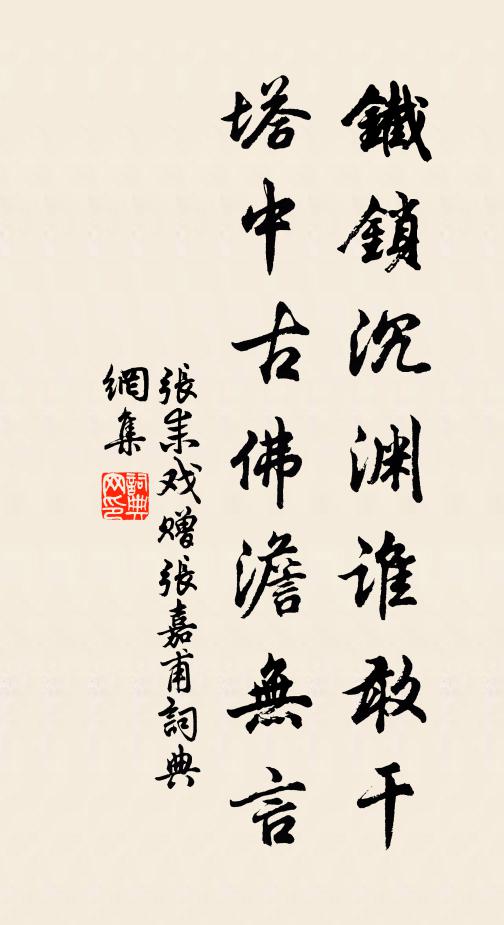 鐵鎖沉淵誰敢干
塔中古佛澹無言
張耒戏贈張嘉甫詞典
網集
詞典网印